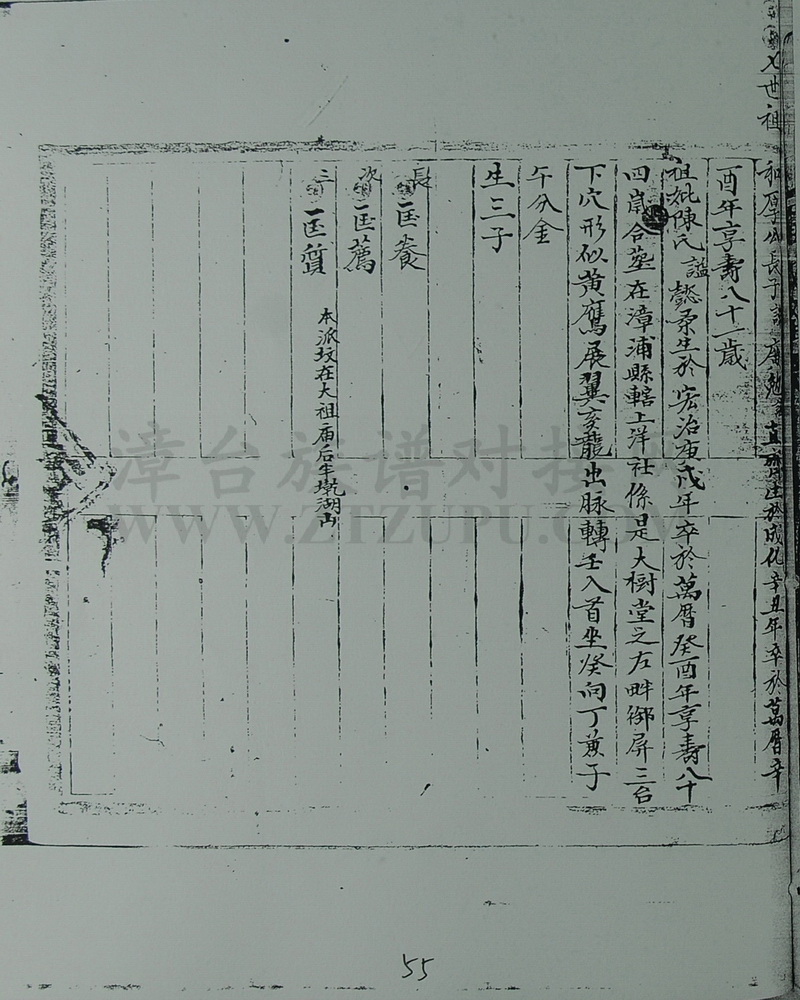 八世祖
和厚公長子諱 直 生於成化辛丑年卒於萬曆辛
酉年享壽八十一歲
祖妣陳氏諡懿柔生於宏治庚戌年卒於萬曆癸酉年享壽八十
四歲合塟在漳浦縣轄上洋社係是大樹堂之左畔御屏三台
下穴形似黄鷹展翼亥龍出脉轉壬入首坐癸向丁兼子
午分金
生三子
長 匡養
次 匡薦
三 匡質
本派坟在大祖庙后牛坑湖山
漳台族谱对接
WWW.ZTZUPU.COM
55